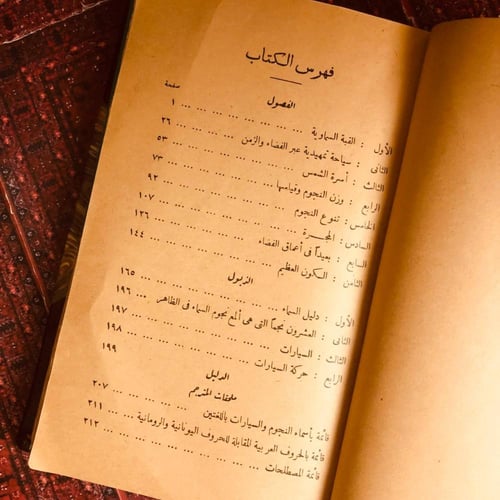 فهرس الكتاب
الفصول
صفحة
الأول : القبة السماوية ... ... ... ... ... ... ... ١
الثانى : سياحة تمهيدية عبر الفضاء والزمن ... ... ... ٢٦
الثالث : أسرة الشمس ... ... ... ... ... ... ... ٥٣
الرابع : وزن النجوم وقياسها ... ... ... ... ... ... ٧٣
الخامس : تنوع النجوم ... ... ... ... ... ... ... ٩٢
السادس : المجرة ... ... ... ... ... ... ... ١٠٧
السابع : بعيداً فى أعماق الفضاء ... ... ... ... ... ١٢٦
الثامن : السكون العظيم ... ... ... ... ... ... ١٤٤
الذيول
الأول : دليل السماء ... ... ... ... ... ... ... ١٦٥
الثانى : العشرون نجماً التى هى ألمع نجوم السماء فى الظاهر ... ١٩٦
الثالث : السيارات ... ... ... ... ... ... ... ١٩٧
الرابع : حركة السيارات ... ... ... ... ... ... ١٩٨
١٩٩
الدليل
ملحقات المترجم
قائمة بأسماء النجوم والسيارات باللغتين ... ... ... ... ٢٠٧
قائمة بالحروف العربية المقابلة للحروف اليونانية والرومانية ... ٢١١
قائمة المصطلحات ... ... ... ... ... ... ... ٢١٣